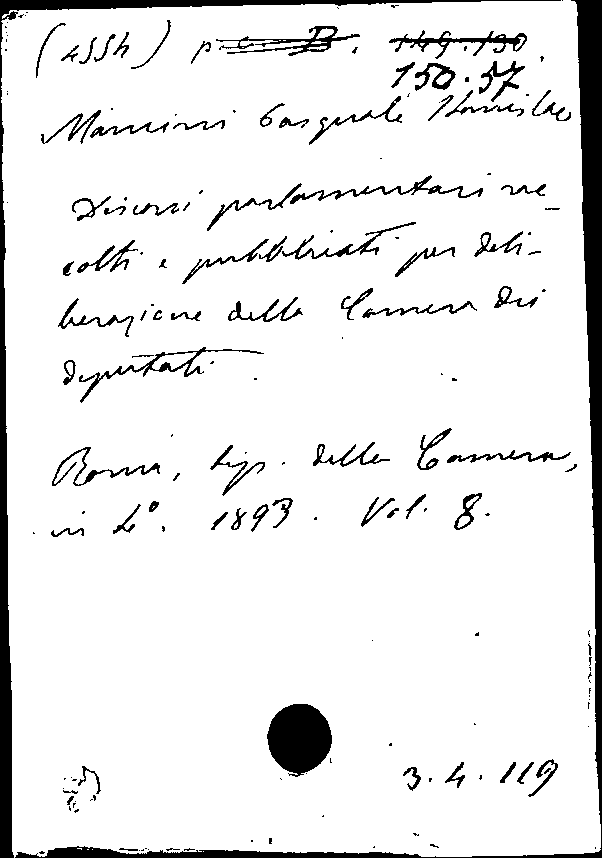 (4554) p. c. B. 149.130.
150.57
Mancini Pasquale Stanislao
Discorsi parlamentari rac-
colti e pubblicati per deli-
berazione della Camera dei
deputati.
Roma, tip. della Camera,
in 4°. 1893. Vol. 8.
3.4.119